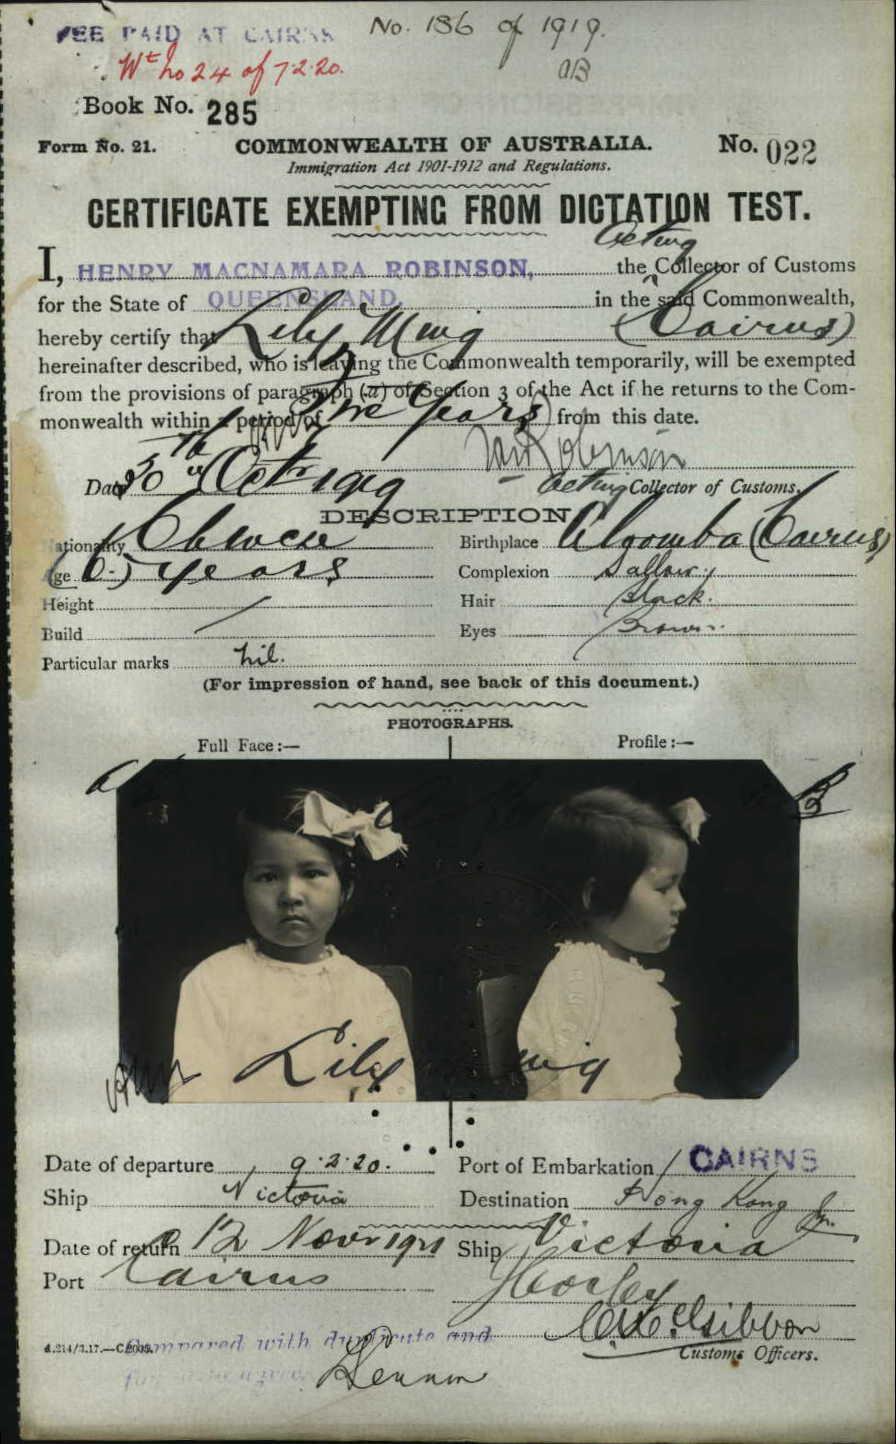 FEE PAID AT CAIRNS
No. 136 of 1919.
Wt no 24 of 7.2.20.
Book No. 285
Form No. 21. COMMONWEALTH OF AUSTRALIA. No. 022
Immigration Act 1901-1912 and Regulations.
CERTIFICATE EXEMPTING FROM DICTATION TEST.
Acting
I, HENRY MACNAMARA ROBINSON, the Collector of Customs
for the State of QUEENSLAND, in the said Commonwealth,
hereby certify that Lily Ming (Cairns)
hereinafter described, who is leaving the Commonwealth temporarily, will be exempted
from the provisions of paragraph (a) of Section 3 of the Act if he returns to the Com-
monwealth within a period of years from this date.
Robinson
Date 30th Octr 1919 Acting Collector of Customs.
DESCRIPTION
Nationality Chinese Birthplace Aloomba (Cairns)
Age (6.) years Complexion Sallow
Height Hair Black.
Build Eyes Brown.
Particular marks nil.
(For impression of hand, see back of this document.)
PHOTOGRAPHS.
Full Face:— Profile:—
Lily Ming
Date of departure 9.2.20. Port of Embarkation CAIRNS
Ship Victoria Destination Hong Kong
Date of return 12 Novr 1921 Ship Victoria
Port Cairns
Customs Officers.
Compared with duplicate and